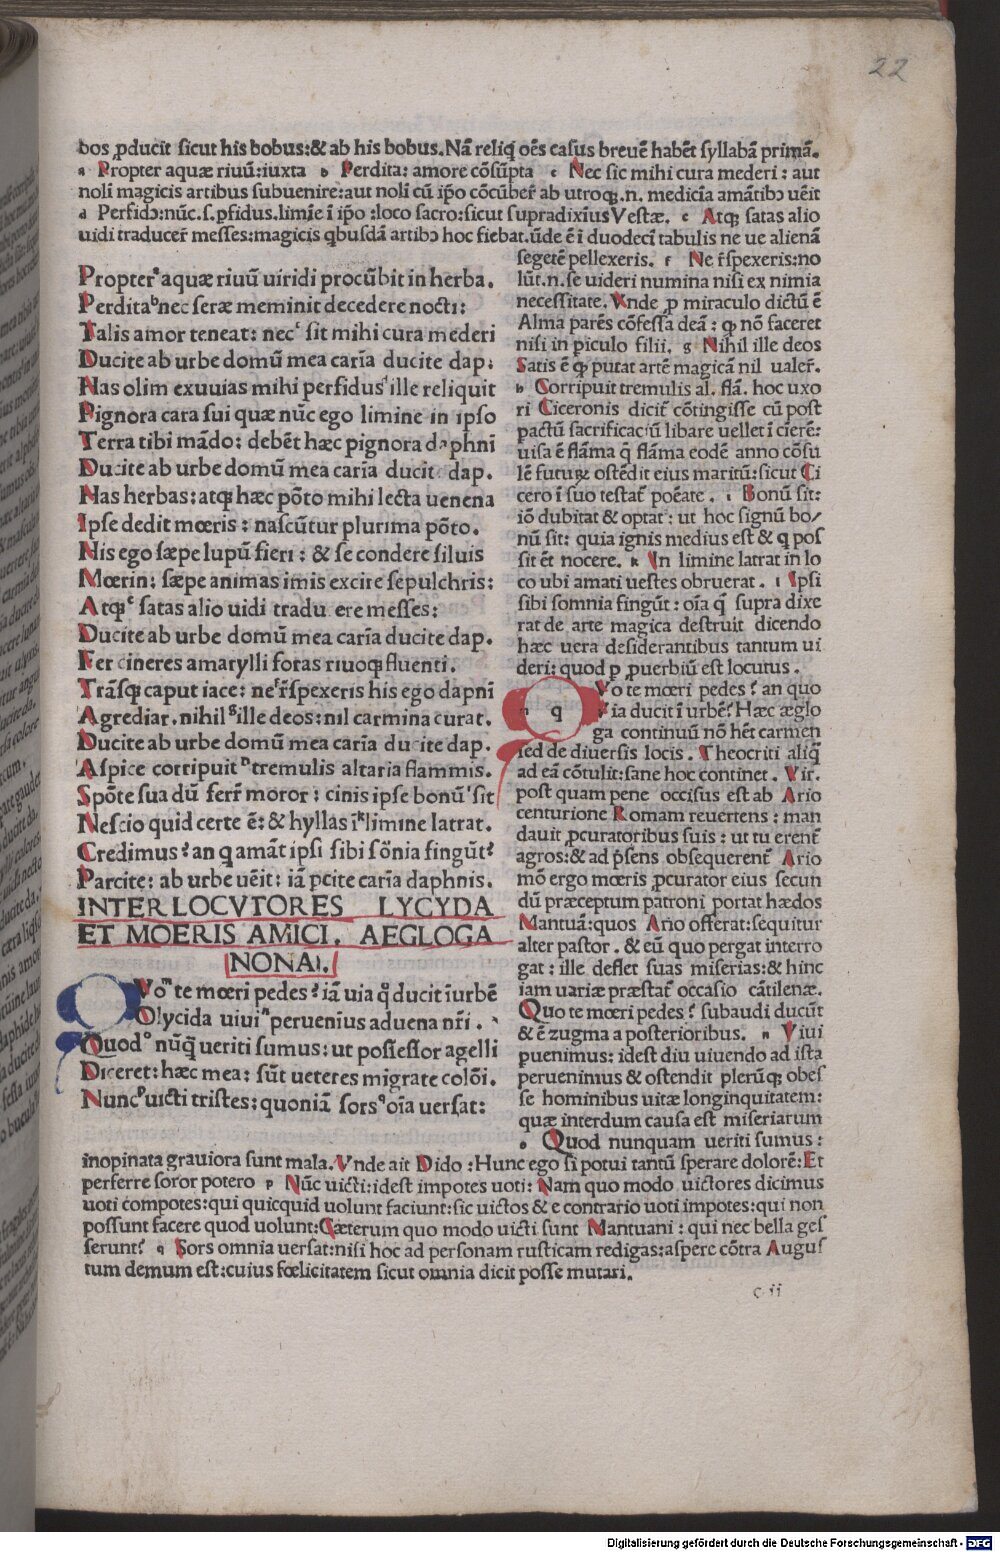 22
bos ꝓducit sicut his bobus:& ab his bobus. Nã reliq̃ oẽs casus breuẽ habẽt syllabã primã.
a Propter aquæ riuũ:iuxta b Perdita: amore cõsũpta c Nec sic mihi cura mederi : aut
noli magicis artibus subuenire:aut noli cũ ip̃o cõcũber̃ ab utroqꝫ .n. medicĩa amãtibꝰ uẽit
d Perfidꝰ:nũc .s. ꝑfidus. limĩe ĩ ip̃o :loco sacro:sicut supradixĩus Vestæ. e Atqꝫ satas alio
uidi traducer̃ messes:magicis qbusdã artibꝰ hoc fiebat. ũde ẽ ĩ duodecĩ tabulis ne ue alienã
Propterᵃ aquæ riuũ uiridi procũbit in herba.
Perditaᵇ nec seræ meminit decedere nocti:
Talis amor teneat: necᶜ sit mihi cura mederi
Ducite ab urbe domũ mea carĩa ducite dap:
Has olim exuuias mihi perfidusᵈ ille reliquit
Pignora cara sui quæ nũc ego limine in ipso
Terra tibi mãdo: debẽt hæc pignora daphni
Ducite ab urbe domũ mea carĩa ducit dap.
Has herbas: atqꝫ hæc põto mihi lecta uenena
Ipse dedit mœris : nascũtur plurima põto.
His ego sæpe lupũ fieri : & se condere siluis
Mœrin: sæpe animas imis excire sepulchris:
Atqꝫᵉ satas alio uidi tradu ere messes:
Ducite ab urbe domũ mea carĩa ducite dap.
Fer cineres amarylli foras riuoqꝫ fluenti.
Trãsqꝫ caput iace: neᶠ r̃spexeris his ego dapnĩ
Agrediar. nihilᵍ ille deos: nil carmina curat.
Ducite ab urbe domũ mea carĩa ducite dap.
Aspice corripuitʰ tremulis altaria flammis.
Spõte sua dũ ferr̃ moror : cinis ipse bonũⁱ sit
Nescio quid certe ẽ: & hyllas ĩᵏ limine latrat.
Credimusˡ? an q amãt ipsi sibi sõnia fingũt?
Parcite: ab urbe uẽit: iã ꝑcite carĩa daphnis.
INTERLOCVTORES LYCYDA
ET MOERIS AMICI. AEGLOGA
NONA.
QVoᵐ te mœri pedes? iã uia q̃ ducit ĩ urbẽ
O lycida uiuiⁿ peruenius aduena nr̃i .
Quodᵒ nũq̃ ueriti sumus: ut possessor agelli
Diceret: hæc mea: sũt ueteres migrate colõi.
Nuncᵖ uicti tristes: quoniã sors oĩa uersat:
segetẽ pellexeris. f Ne r̃spexeris:no
lũt .n. se uideri numina nisi ex nimia
necessitate. Vnde ꝓ miraculo dictũ ẽ
Alma parẽs cõfessa deã : qꝫ nõ faceret
nisi in piculo filii. g Nihil ille deos
Satis ẽ qꝫ putat artẽ magicã nil ualer̃.
h Corripuit tremulis al. flã. hoc uxo
ri Ciceronis dicit̃ cõtingisse cũ post
pactũ sacrificaciũ libare uellet ĩ cĩerẽ:
uisa ẽ flãma q̃ flãma eodẽ anno cõsu
lẽ futurꝫ ostẽdit eius maritũ:sicut Ci
cero ĩ suo testat̃ poẽate . i Bonũ sit:
iõ dubitat & optat : ut hoc signũ bo/
nũ sit: quia ignis medius est & q pos
sit ẽt nocere. k In limine latrat in lo
co ubi amati uestes obruerat . l Ipsi
sibi somnia fingũt : oĩa q̃ supra dixe
rat de arte magica destruit dicendo
hæc uera desiderantibus tantum ui
deri: quod ꝑ ꝓuerbiũ est locutus .
q Vo te mœri pedes? an quo
uia ducit ĩ urbẽ? Hæc æglo
ga continuũ nõ hẽt carmen
sed de diuersis locis . Theocriti aliq̃
ad eã cõtulit:sane hoc continet . Vir.
post quam pene occisus est ab Ario
centurione Romam reuertens : man
dauit ꝓcuratoribus suis : ut tu erent̃
agros:& ad p̃sens obsequerent̃ Ario
mõ ergo mœris ꝓcurator eius secun
dũ præceptum patroni portat hædos
Mantuã:quos Ario offerat:sequitur
alter pastor . & eũ quo pergat interro
gat : ille deflet suas miserias:& hinc
iam uariæ præstat̃ occasio cãtilenæ.
Quo te mœri pedes? subaudi ducũt
& ẽ zugma a posterioribus. n Viui
puenimus: idest diu uiuendo ad ista
peruenimus & ostendit plerũqꝫ obes
se hominibus uitæ longinquitatem:
quæ interdum causa est miseriarum
o Quod nunquam ueriti sumus :
inopinata grauiora sunt mala. Vnde ait Dido : Hunc ego si potui tantũ sperare dolorẽ: Et
perferre soror potero p Nũc uicti: idest impotes uoti: Nam quo modo uictores dicimus
uoti compotes:qui quicquid uolunt faciunt:sic uictos & e contrario uoti impotes:qui non
possunt facere quod uolunt:Cæterum quo modo uicti sunt Mantuani : qui nec bella ges
serunt? q Sors omnia uersat:nisi hoc ad personam rusticam redigas:aspere cõtra Augus
tum demum est:cuius fœlicitatem sicut omnia dicit posse mutari.
c ii
Digitalisierung gefördert durch die Deutsche Forschungsgemeinschaft - DFG